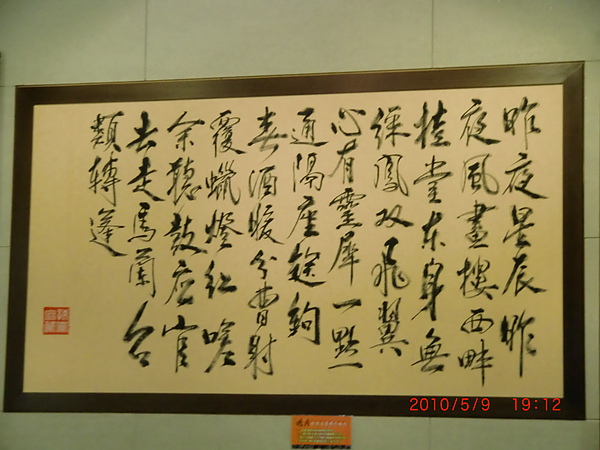 昨夜星辰昨
夜風畫樓西畔
桂堂东身無
綵鳳双飛翼
心有靈犀一點
通隔座送鉤
春酒暖分曹射
覆蠟燈红嗟
余聽鼓应官
去走馬蘭台
類轉蓬
2010/5/9 19:12